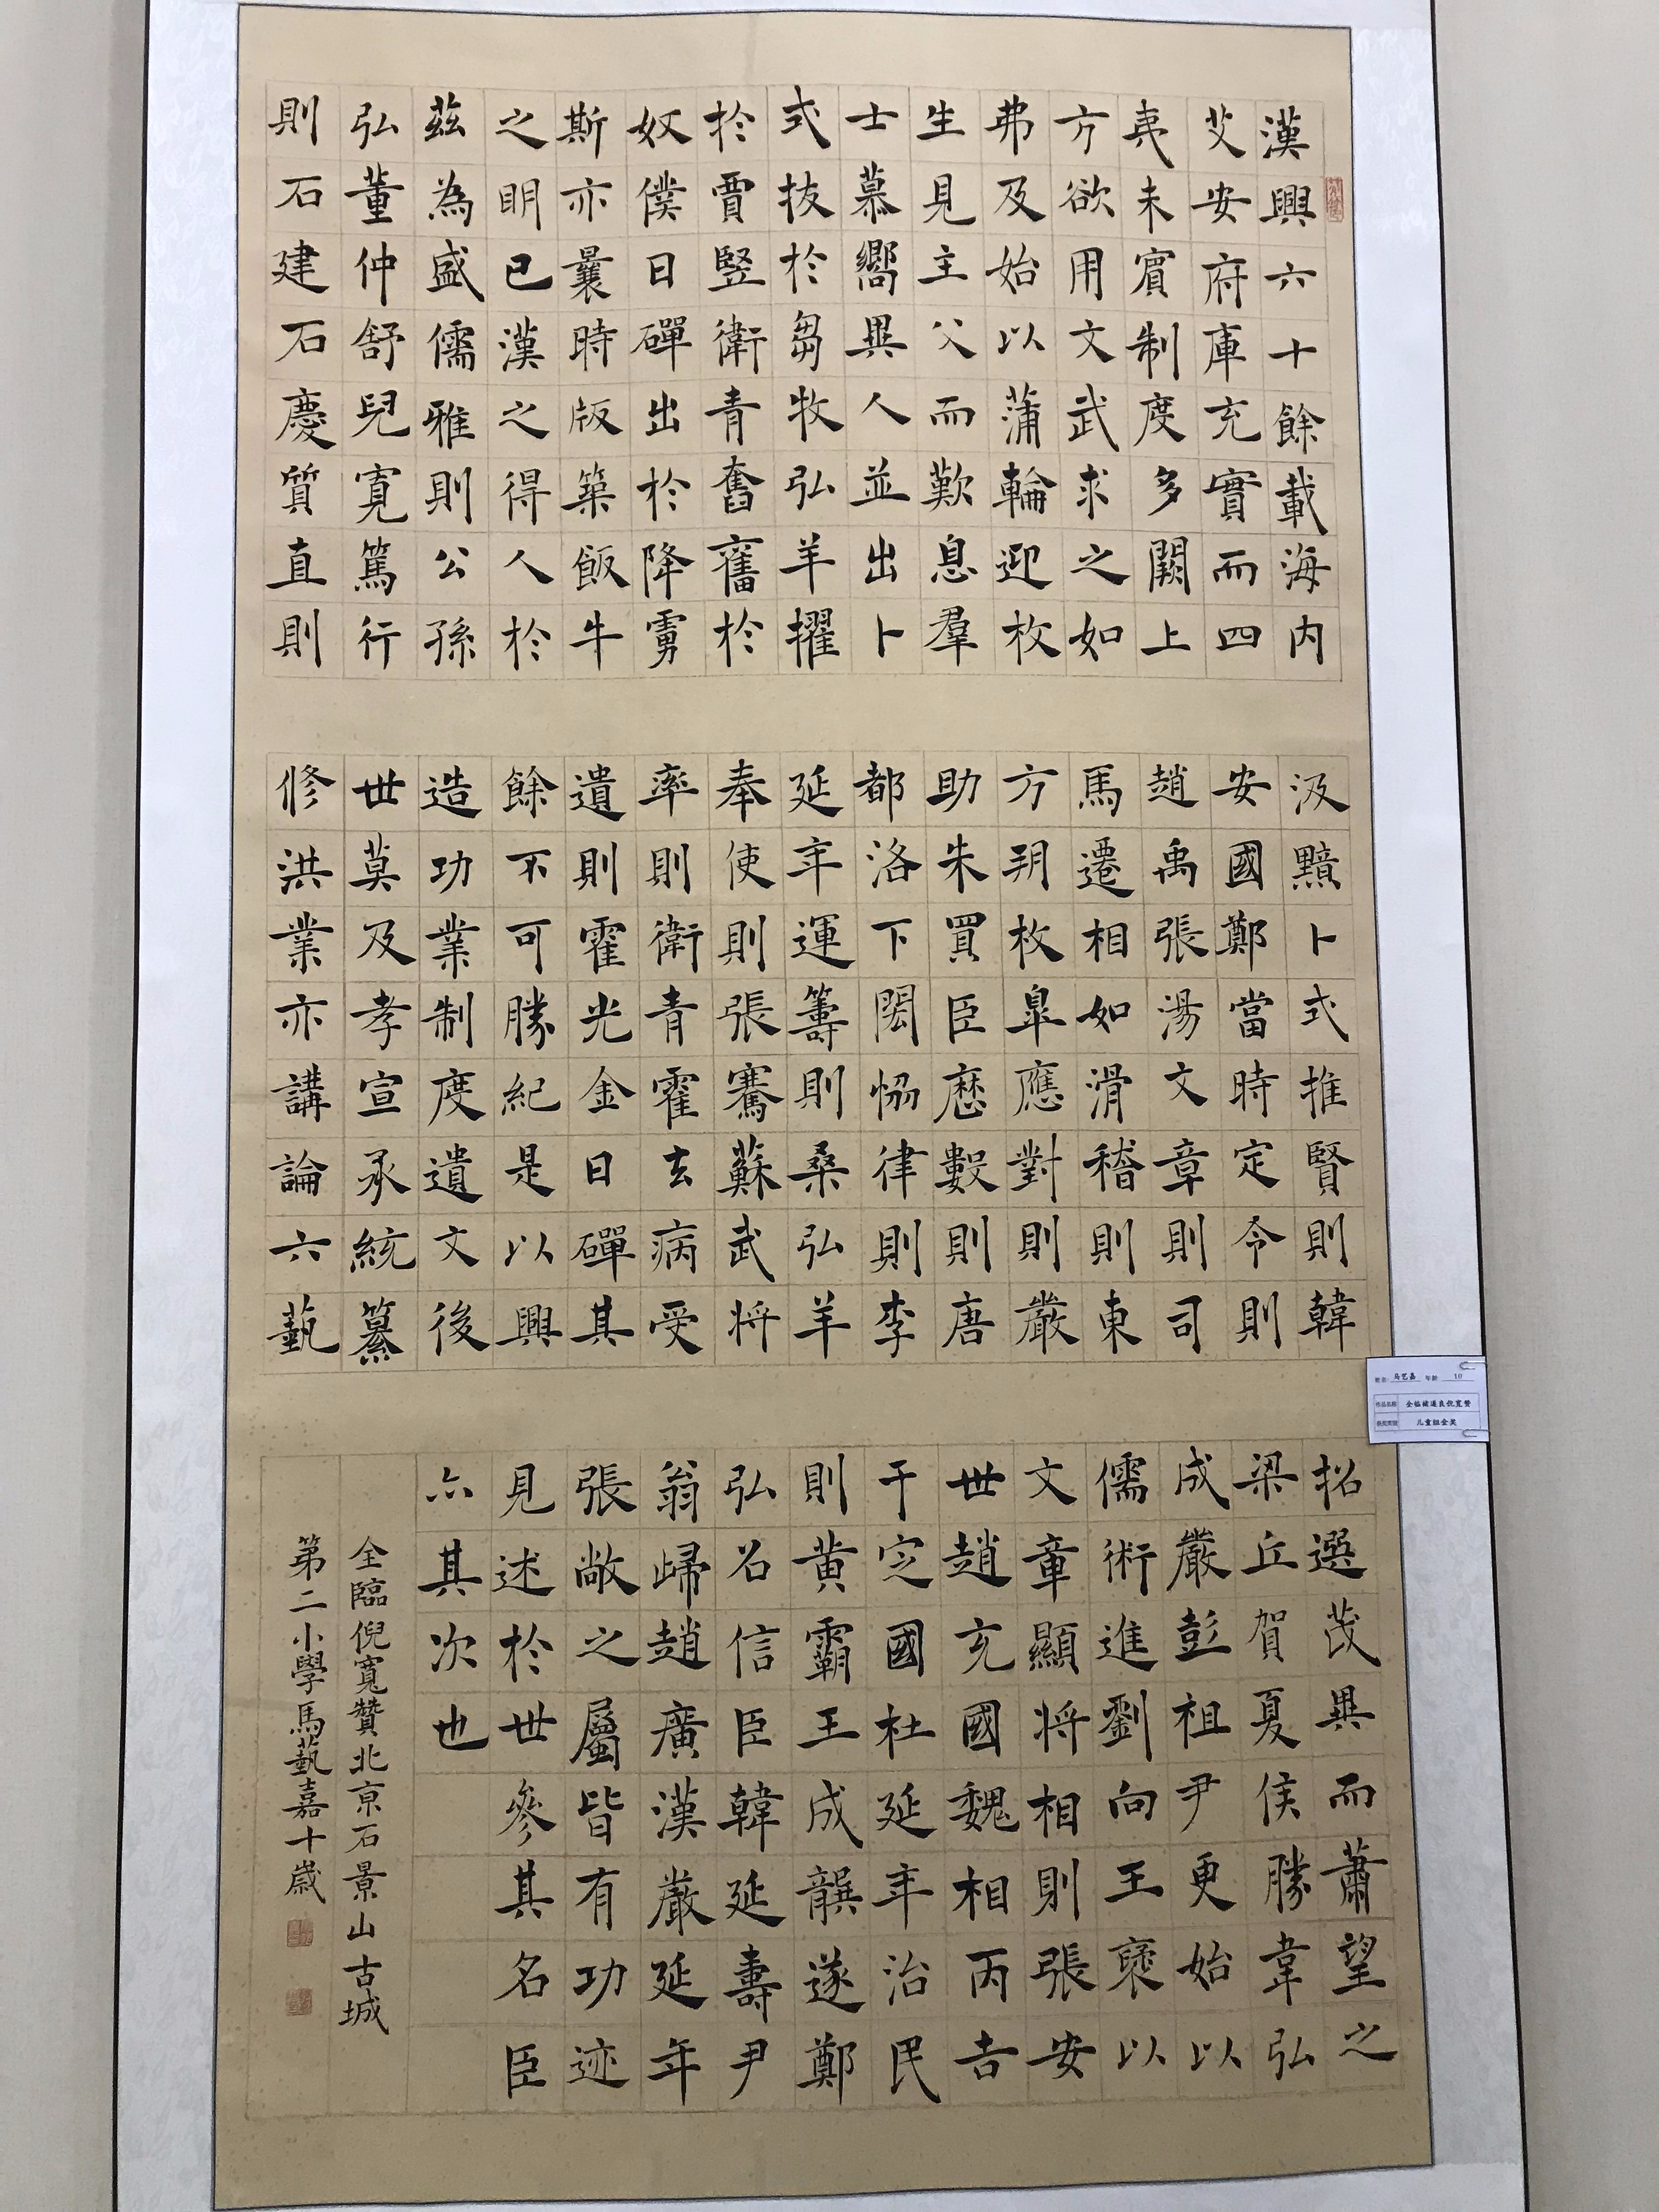 漢興六十餘載海内
艾安府庫充實而四
夷未賓制度多闕上
方欲用文武求之如
弗及始以蒲輪迎枚
生見主父而歎息羣
士慕嚮異人並出卜
式拔於芻牧弘羊擢
於賈豎衛青奮舊於
奴僕日磾出於降虜
斯亦曩時版築飯牛
之朙已漢之得人於
茲為盛儒雅則公孫
弘董仲舒兒寬篤行
則石建石慶質直則
汲黯卜式推賢則韓
安國鄭當時定令則
趙禹張湯文章則司
馬遷相如滑稽則東
方朔枚皐應對則嚴
助朱買臣歷數則唐
都洛下閎恊律則李
延年運籌則桑弘羊
奉使則張騫蘇武將
率則衛青霍去病受
遺則霍光金日磾其
餘不可勝紀是以興
造功業制度遺文後
世莫及孝宣承統纂
修洪業亦講論六藝
招選茂異而蕭望之
梁丘賀夏侯勝韋弘
成嚴彭祖尹更始以
儒術進劉向王褒以
文章顯將相則張安
世趙充國魏相丙吉
于定國杜延年治民
則黄霸王成龔遂鄭
弘召信臣韓延壽尹
翁歸趙廣漢嚴延年
張敞之屬皆有功迹
見述於世參其名臣
亦其次也
全臨倪寬贊北京石景山古城
第二小學馬藝嘉十歲
姓名 马艺嘉 年龄 10
作品名称 全临褚遂良倪宽赞
获奖类别 儿童组金奖